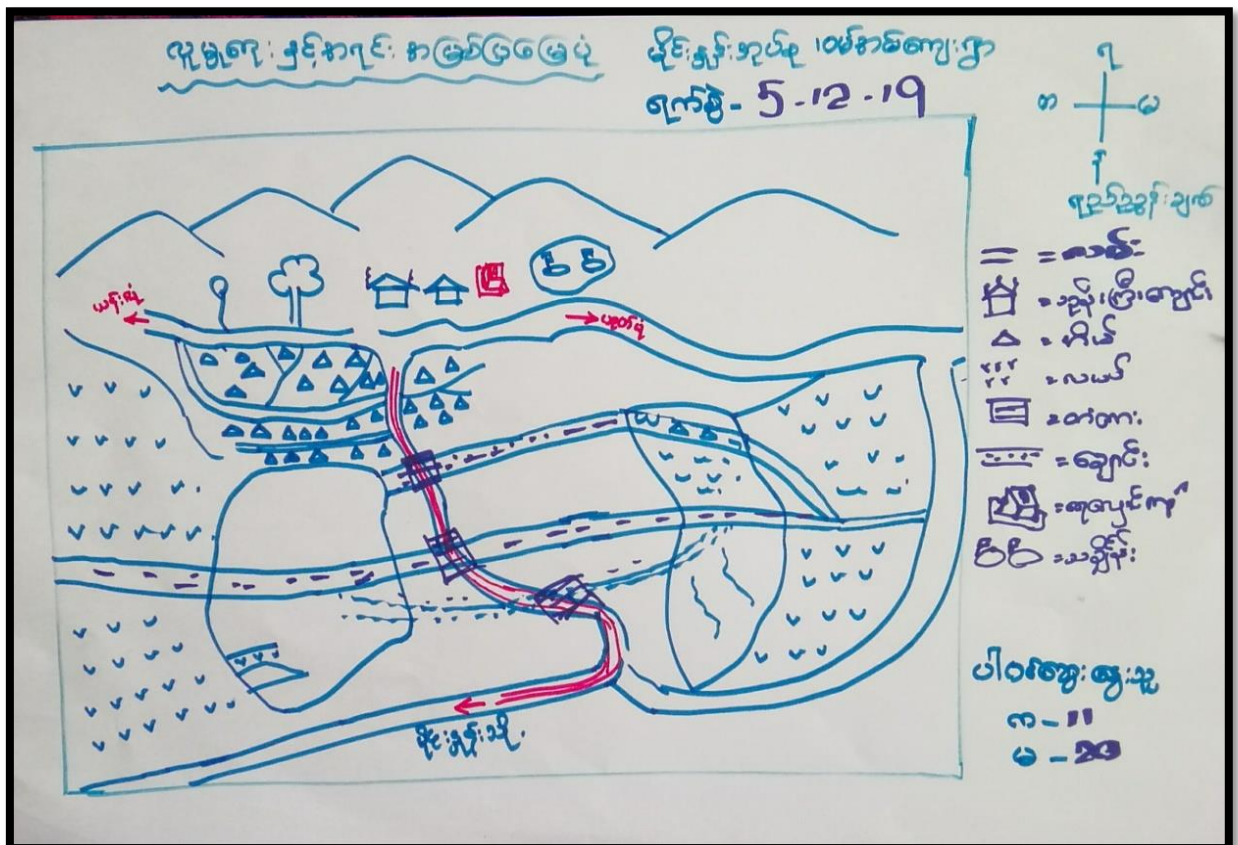 လူမှုရေး နှင့်အရင်း အမြစ်ပြမြေပုံ
မိုင်းနွန်းအုပ်စု ဝမ်အမ်ကျေးရွာ
ရက်စွဲ - 5-12-19
ရ
တ မ
န်
ရည်ညွှန်းချက်
= လမ်း
= ဘုန်းကြီးကျောင်း
= အိမ်
= လယ်
= တံတား
= ချောင်း
= ရေလှောင်ကန်
= သချိုင်း
မိုင်းနွန်းသို့
ပါဝင်ဆွေးနွေးသူ
က - 11
မ - 20